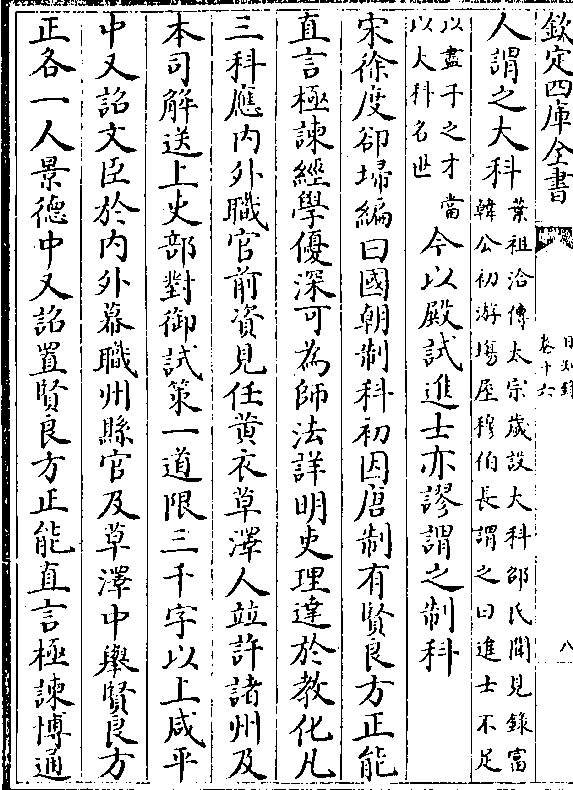 欽定四庫全書
日知錄
卷十六
八
人謂之大科葉祖洽傳太宗歲設大科邵氏聞見錄富
韓公初游塲屋穆伯長謂之曰進士不足
以盡子之才當
以大科名世
今以殿試進士亦謬謂之制科
宋徐度卻埽編曰國朝制科初因唐制有賢良方正能
直言極諫經學優深可為師法詳明吏理達於教化凡
三科應内外職官前資見任黄衣草澤人並許諸州及
本司解送上吏部對御試策一道限三千字以上咸平
中又詔文臣於内外幕職州縣官及草澤中舉賢良方
正各一人景德中又詔置賢良方正能直言極諫博通